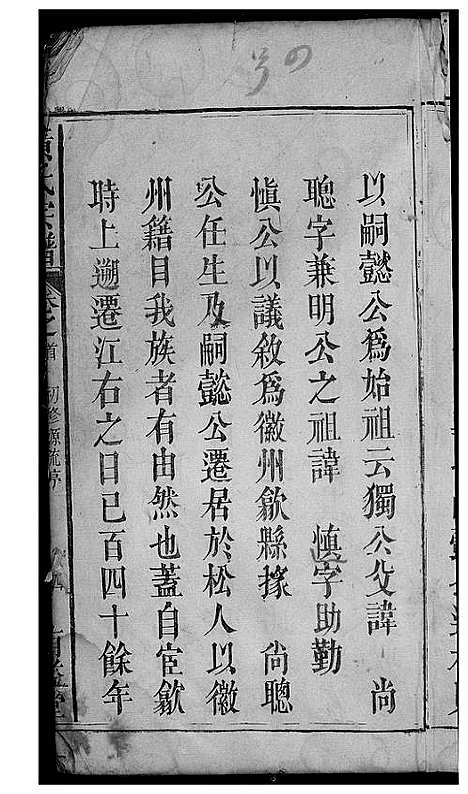 以嗣懿公爲始祖云獨公父諱 尚
聰字兼明公之祖諱 慎字助勤
慎公以議敘爲徽州歙縣掾 尚聰
公任生及嗣懿公遷居於松人以徽
州籍目我族者有由然也蓋自宦歙
時上遡遷江右之日已百四十餘年
黃氏宗譜 卷之首 初修源流序